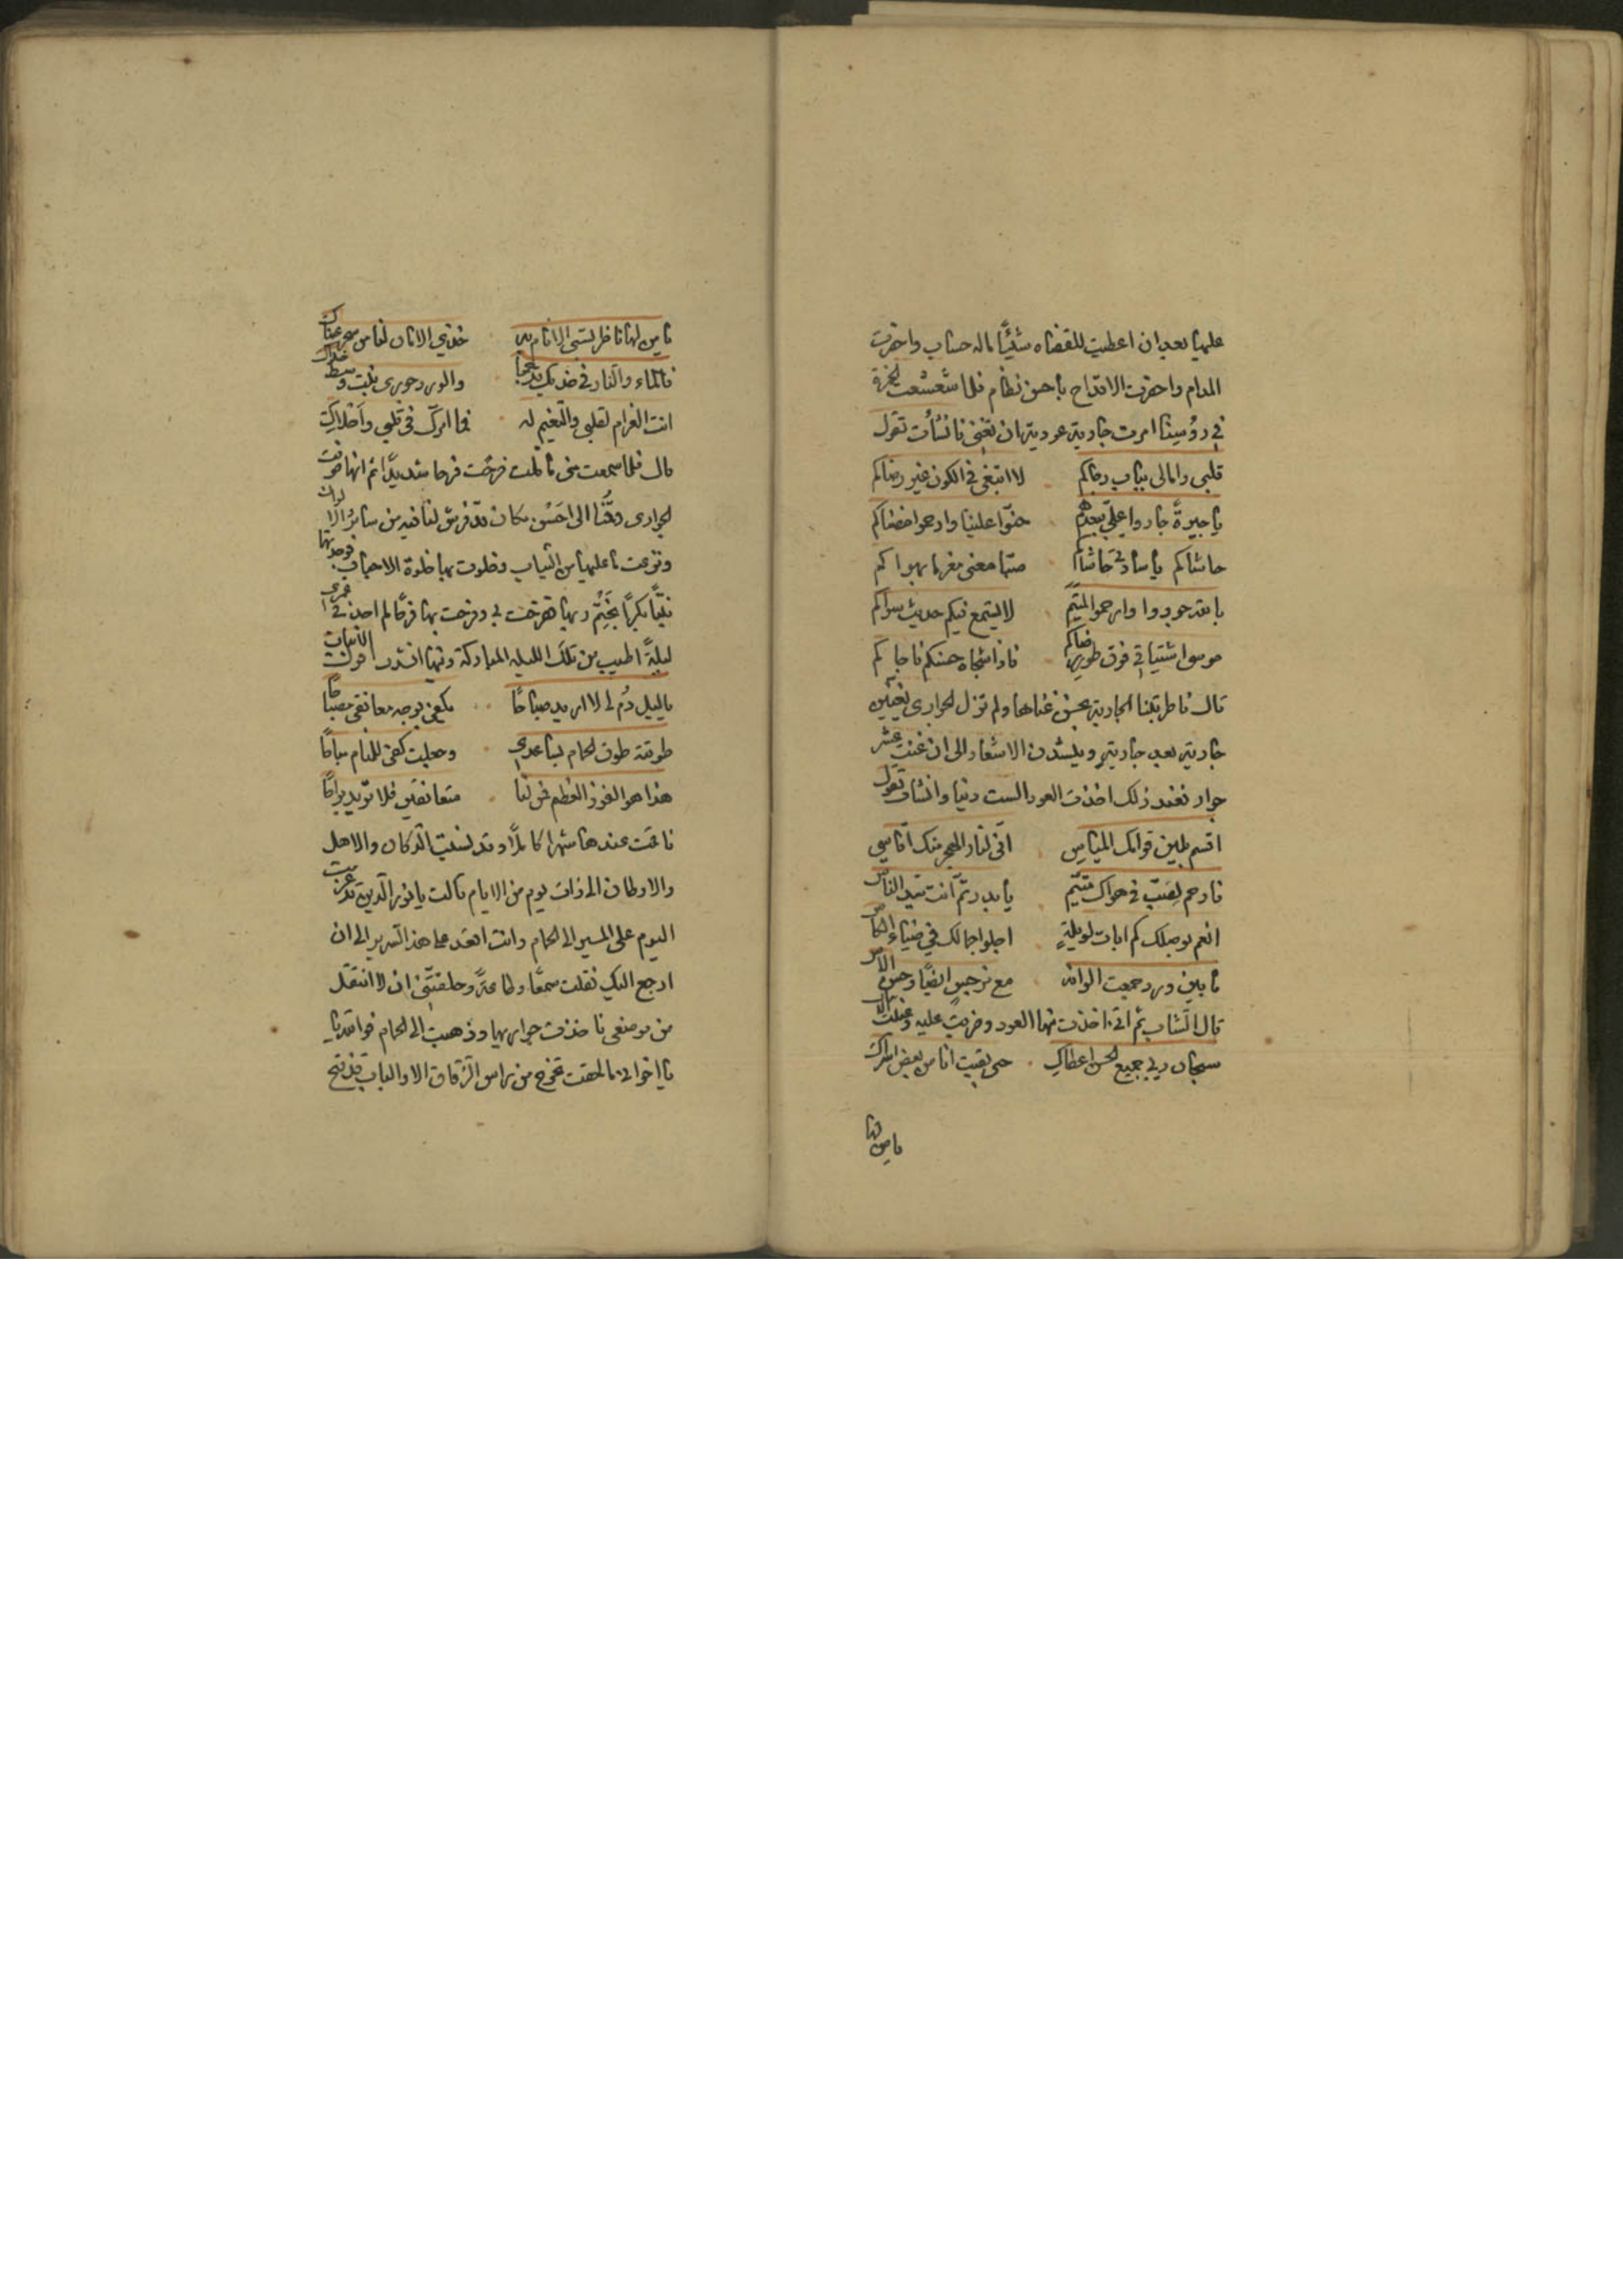 عليها بعد ان اعطيت للقضاه شيئًا ماله حساب واحضرت
المدام واحضرت الاقداح باحسن نظام فلما شعشعت الخمرة
في رؤسنا امرت جارية عودية ان تغني فانشأت تقول
قلبي وامالي بباب رجاكم لا ابتغي في الكون غير رضاكم
يا جيرةً جاروا عليّ ببعدهم حنوّا علينا وارحموا مضناكم
حاشاكم يا سادتي حاشاكم صبًا معنى مغرما بهواكم
بالله جودوا وارحموا المتيّم لا يستمع فيكم حديث سواكم
موسى اشتياقي فوق طور فناكم فاذا شجاه حسنكم ناجاكم
قال فاطربتنا الجارية بحسن غناها ولم تزل الجواري تغني
جارية بعد جارية وينشدن الاشعار الى ان غنت عشر
جوار فعند ذلك اخذت العود الست دنيا وانشات تقول
اقسم بلين قوامك المياس اني لنار الهجر منك اقاسي
فارحم لصبّ في هواك متيّم يا بدر تمّ انت سيد الناس
انعم بوصلك كم ابات لويلةٍ اجلوا جمالك في ضياء الكاس
ما بين ورد جمعت الوانه مع نرجس ايضًا وحسن الاس
قال الشاب ثم اني اخذت منها العود وضربت عليه وغنيت
سبحان ربي جميع الحسن اعطاك حتى بقيت انا من بعض اسراك
يا من لها
يا من لها ناظر تسبي الانام به خذي الامان لنا من سحر عيناك
فالماء والنار في خديك قد جمعا والورد جوري نبت وسط خداك
انت الغرام لقلبي والنعيم له فما امرّك في قلبي واحلاك
قال فلما سمعت مني ما قلت فرحت فرحا شديدًا ثم انها صرفت
الجواري وقمنا الى احسن مكان قد فرش لنا فيه من ساير الالوان
ونزعت ما عليها من الثياب وخلوت بها خلوة الاحباب فوجدتها
بنتًا بكرًا بختم ربها ففرحت بي وفرحت بها فرحًا لم اجد في عمري
ليلةً اطيب من تلك الليله المباركة وفيها انشدت الابيات
يا ليل دُم لي لا اريد صباحًا يكفي بوجه معانقي مصباحًا
طوقته طوق الحمام بساعدي وجعلت كفي للثام مباحًا
هذا هو الفوز العظيم فمن لنا متعانقين فلا نريد براحًا
فاقمت عندها شهرا كاملاً وقد نسيت الدكان والاهل
والاوطان الى ذات يوم من الايام قالت يا نور الدين قد عزمت
اليوم على المسير الى الحمام وانت اقعد على هذا السرير الى ان
ارجع اليك فقلت سمعًا وطاعةً وحلفتني ان لا انتقل
من موضعي فاخذت جواريها وذهبت الى الحمام فوالله
يا اخواني ما لحقت تخرج من راس الزقاق الا والباب قد فتح